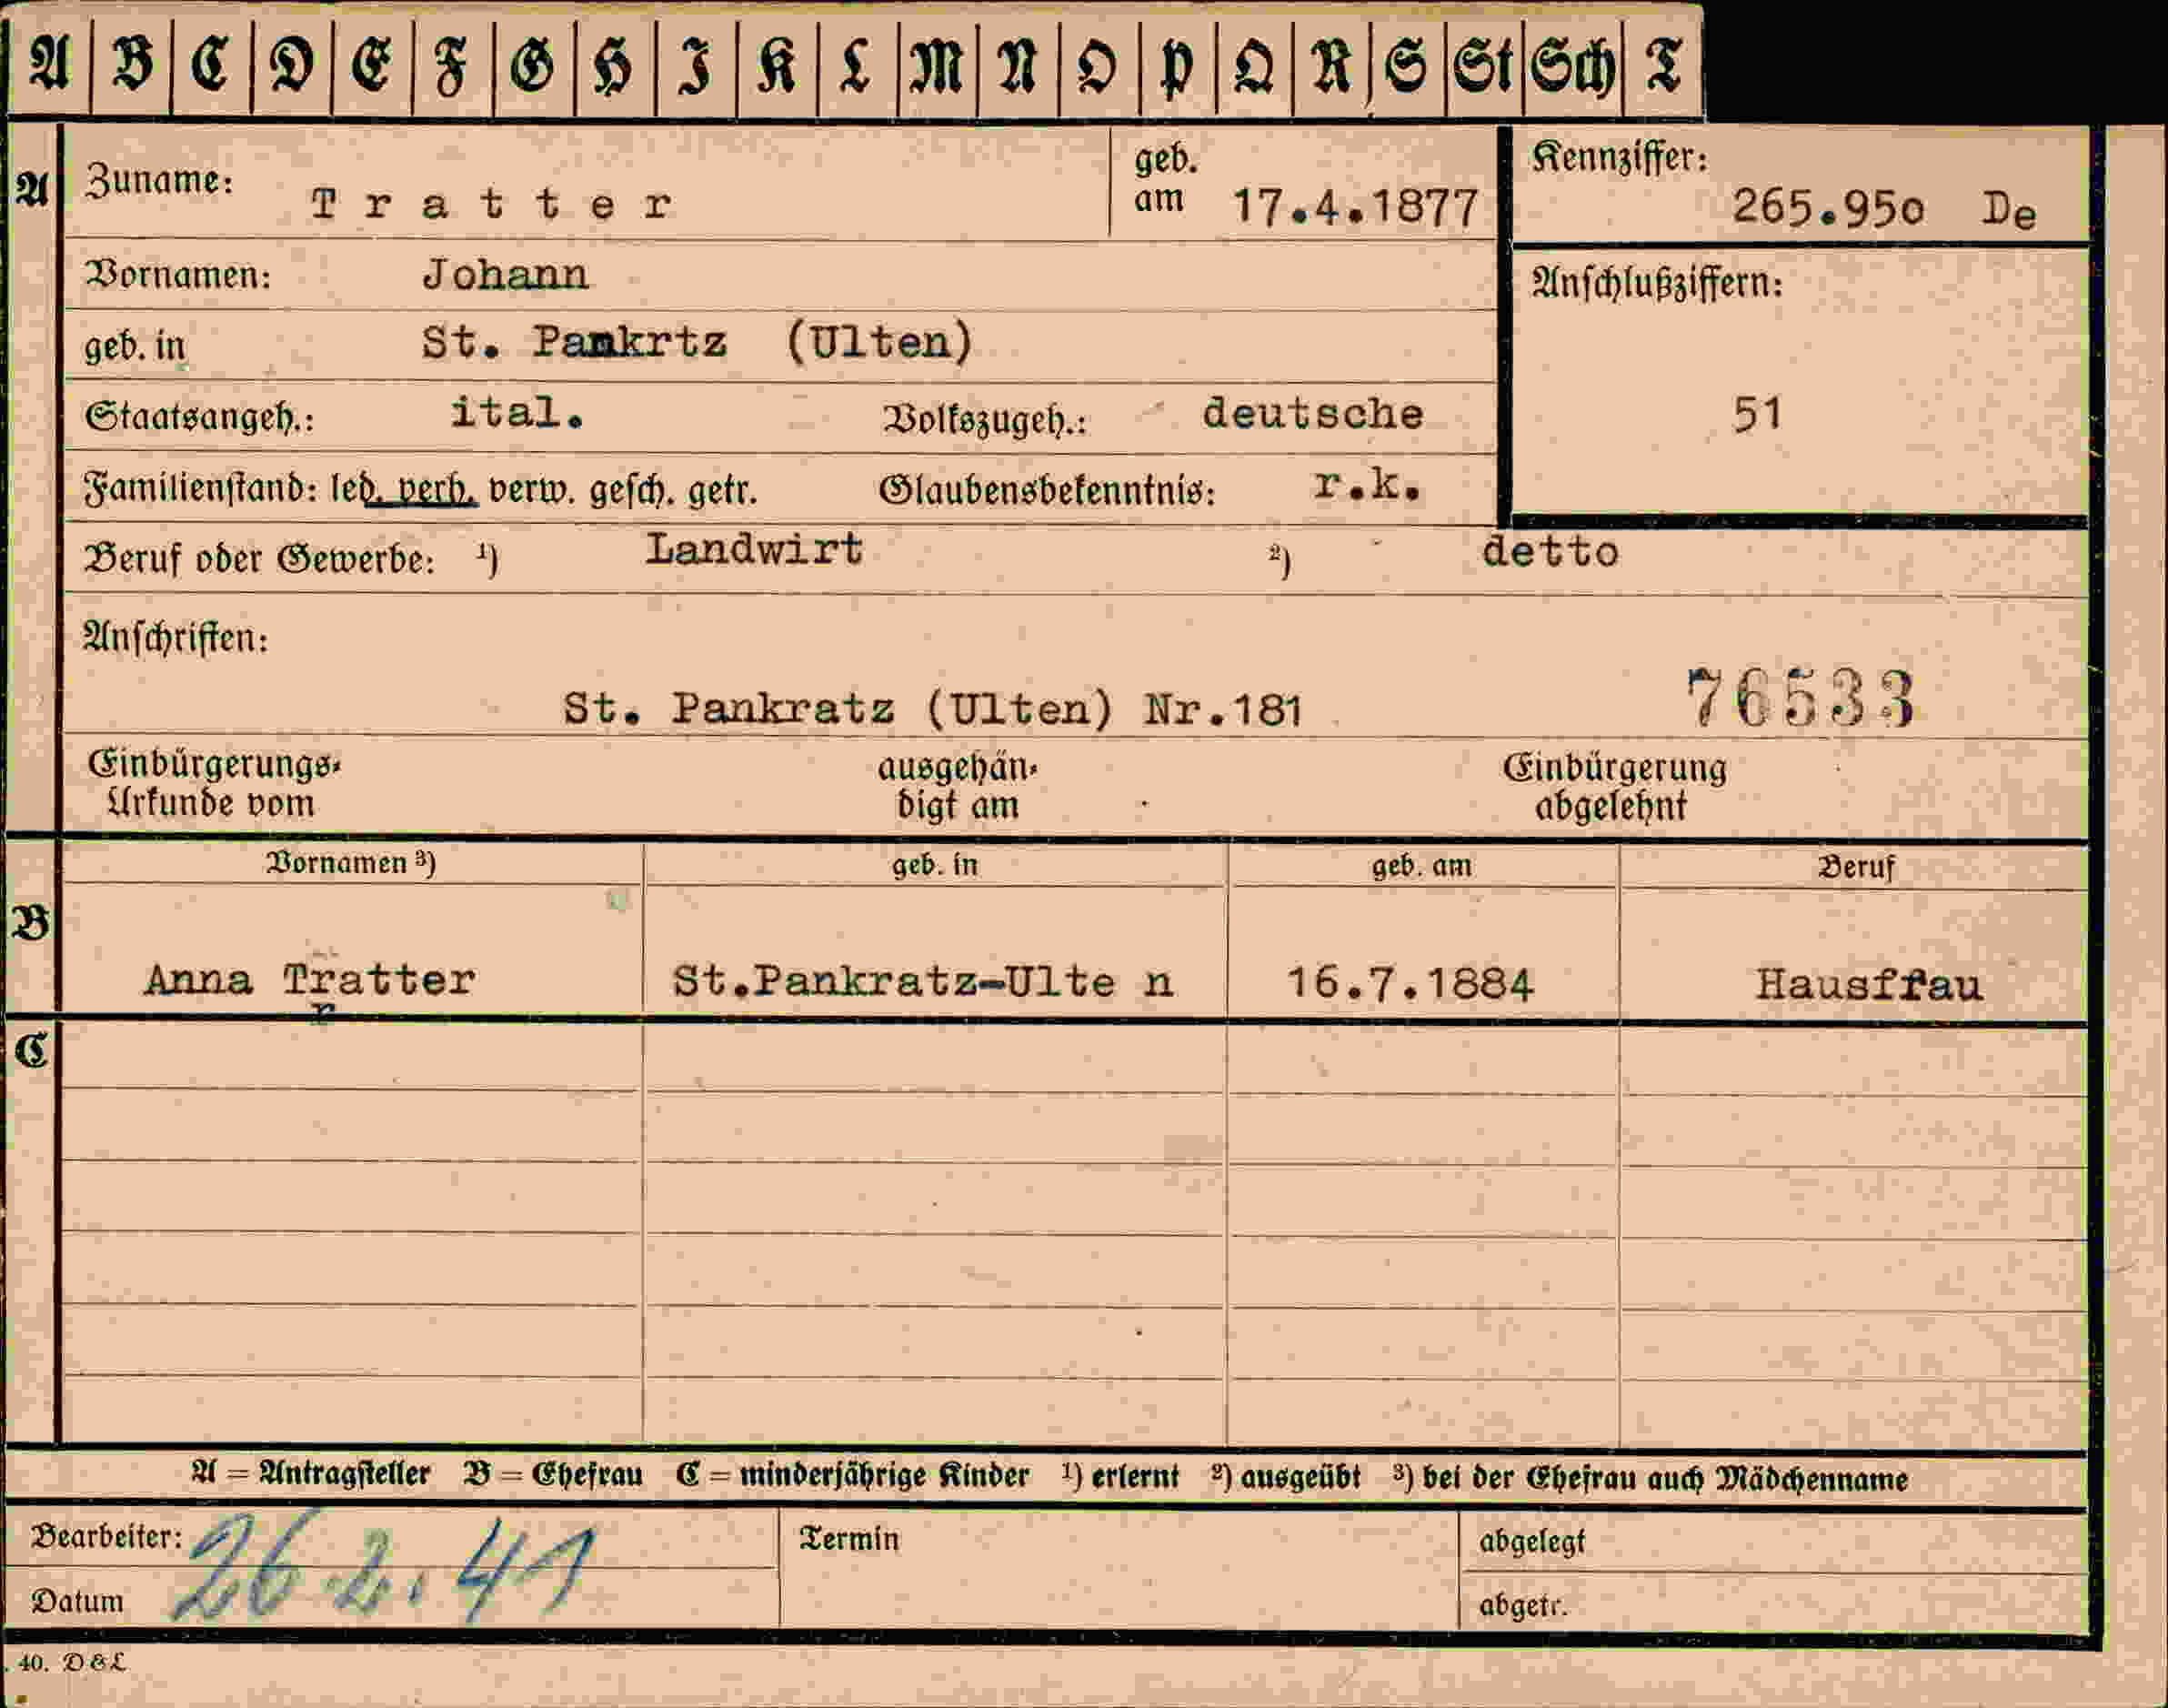 A B C D E F G H I K L M N O P Q R S St Sch T
A Zuname: Tratter geb. am 17.4.1877 Kennziffer: 265.950 De
Vornamen: Johann Anschlußziffern:
geb. in St. Pankrtz (Ulten)
Staatsangeh.: ital. Volkszugeh.: deutsche 51
Familienstand: led. verh. verw. gesch. getr. Glaubensbekenntnis: r.k.
Beruf oder Gewerbe: 1) Landwirt 2) detto
Anschriften:
St. Pankratz (Ulten) Nr.181 76533
Einbürgerungs- ausgehän- Einbürgerung
Urkunde vom digt am abgelehnt
Vornamen 3) geb. in geb. am Beruf
B
Anna Tratter St.Pankratz-Ulte n 16.7.1884 Hausffau
r
C
A = Antragsteller B = Ehefrau C = minderjährige Kinder 1) erlernt 2) ausgeübt 3) bei der Ehefrau auch Mädchenname
Bearbeiter: Termin abgelegt
26.2.41
Datum abgetr.
. 40. D & L